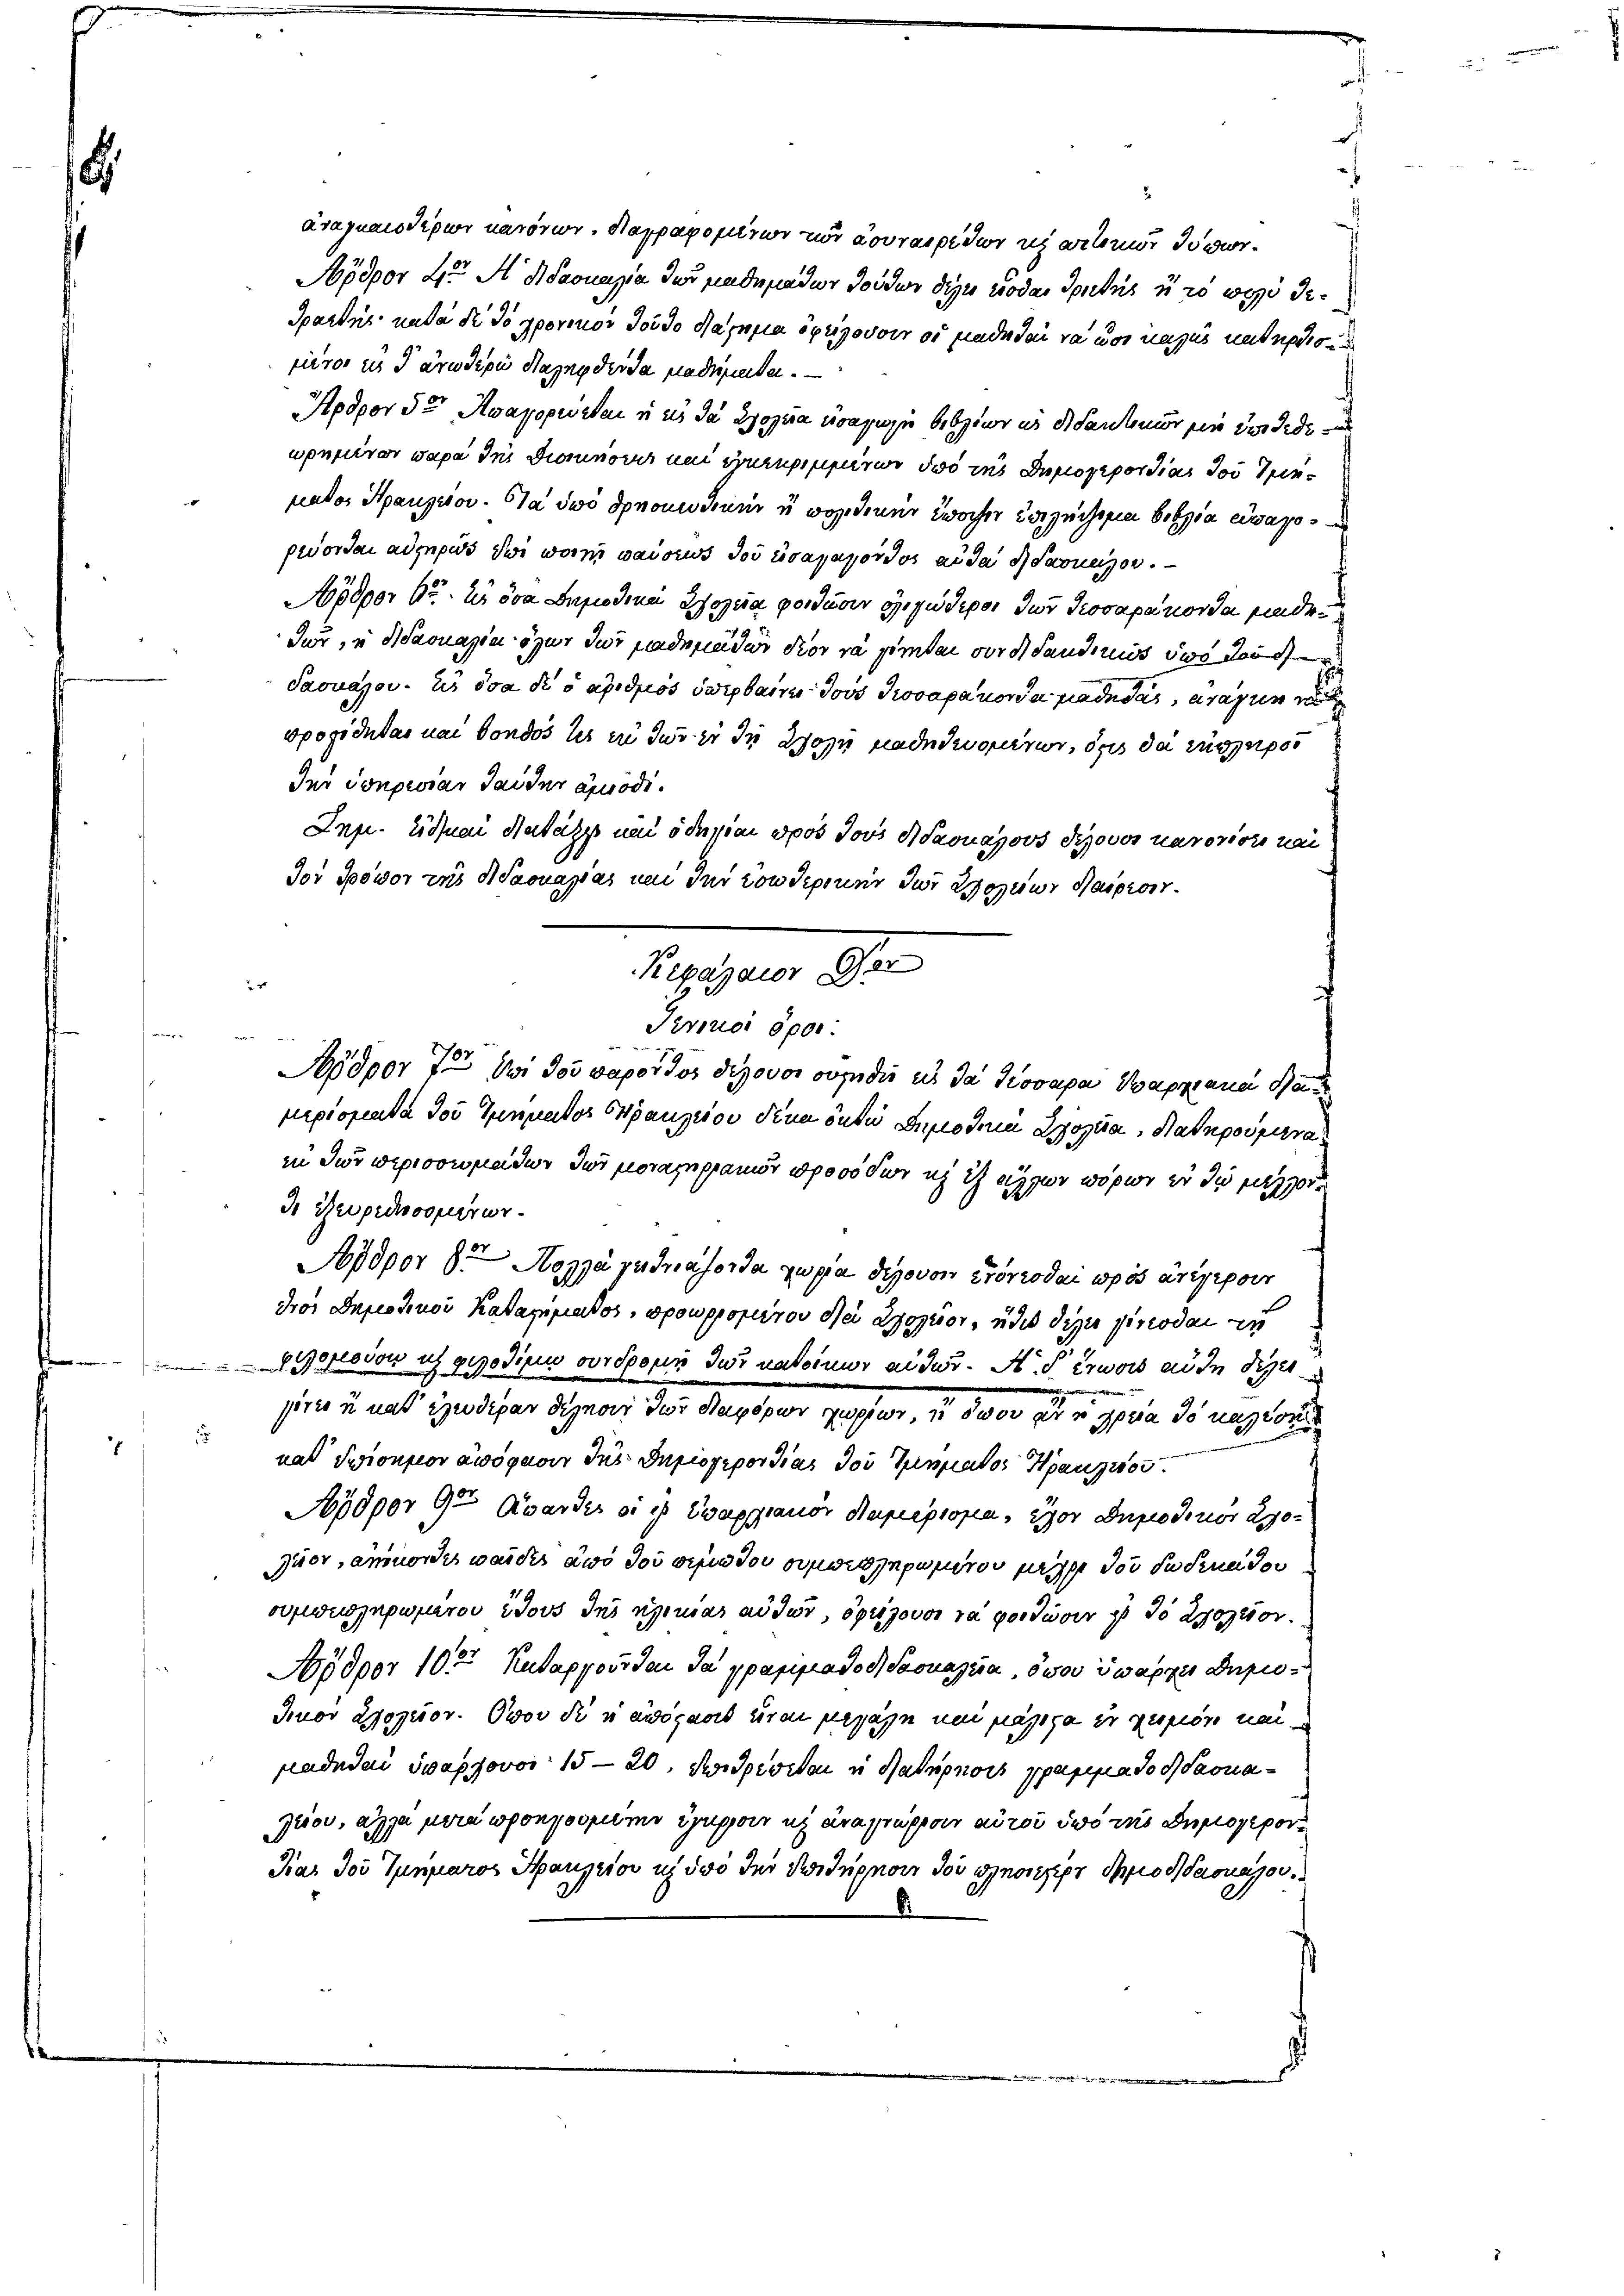 ἀναγκαιοτέρων κανόνων, διαγραφομένων τῶν ἀσυναιρέτων καὶ ἀττικῶν τύπων.
Ἄρθρον 4ον Ἡ διδασκαλία τῶν μαθημάτων τούτων θέλει εἶσθαι τριετὴς ἢ τὸ πολὺ τε-
τραετής· κατὰ δὲ τὸ χρονικὸν τοῦτο διάστημα ὀφείλουσιν οἱ μαθηταὶ νὰ ὦσι καλῶς κατηρτισ-
μένοι εἰς τ' ἀνωτέρω διαληφθέντα μαθήματα. —
Ἄρθρον 5ον Ἀπαγορεύεται ἡ εἰς τὰ Σχολεῖα εἰσαγωγὴ βιβλίων ὡς διδακτικῶν μὴ ἐπιτεθε-
ωρημένων παρὰ τῆς Διοικήσεως καὶ ἐγκεκριμμένων ὑπὸ τῆς Δημογεροντίας τοῦ Τμή-
ματος Ἡρακλείου. Τὰ ὑπὸ θρησκευτικὴν ἢ πολιτικὴν ἔποψιν ἐπιλήψιμα βιβλία ἀπαγο-
ρεύονται αὐστηρῶς ἐπὶ ποινῇ παύσεως τοῦ εἰσαγαγόντος αὐτὰ διδασκάλου. —
Ἄρθρον 6ον. Εἰς ὅσα Δημοτικὰ Σχολεῖα φοιτῶσιν ὀλιγώτεροι τῶν τεσσαράκοντα μαθη-
τῶν, ἡ διδασκαλία ὅλων τῶν μαθημάτων δέον νὰ γίνηται συνδιδακτικῶς ὑπὸ τοῦ δι-
δασκάλου. Εἰς ὅσα δὲ ὁ ἀριθμὸς ὑπερβαίνει τοὺς τεσσαράκοντα μαθητάς, ἀνάγκη νὰ
προστίθηται καὶ βοηθός τις ἐκ τῶν ἐν τῇ Σχολῇ μαθητευομένων, ὅστις θὰ ἐκπληροῖ
τὴν ὑπηρεσίαν ταύτην ἀμισθί.
Σημ. Εἰδικαὶ διατάξεις καὶ ὁδηγίαι πρὸς τοὺς διδασκάλους θέλουσι κανονίσει καὶ
τὸν τρόπον τῆς διδασκαλίας καὶ τὴν ἐσωτερικὴν τῶν Σχολείων διαίρεσιν.
Κεφάλαιον Βον
Γενικοὶ ὅροι:
Ἄρθρον 7ον Ἐπὶ τοῦ παρόντος θέλουσι συστηθῆ εἰς τὰ τέσσαρα Ἐπαρχιακὰ δια-
μερίσματα τοῦ Τμήματος Ἡρακλείου δέκα ὀκτὼ Δημοτικὰ Σχολεῖα, διατηρούμενα
ἐκ τῶν περισσευμάτων τῶν μοναστηριακῶν προσόδων καὶ ἐξ ἄλλων πόρων ἐν τῷ μέλλον-
τι ἐξευρεθησομένων.
Ἄρθρον 8ον Πολλὰ γειτνιάζοντα χωρία θέλουσιν ἑνόνεσθαι πρὸς ἀνέγερσιν
ἑνὸς Δημοτικοῦ Καταστήματος, προωρισμένου διὰ Σχολεῖον, ἥτις θέλει γίνεσθαι τῇ
φιλομούσῳ καὶ φιλοτίμῳ συνδρομῇ τῶν κατοίκων αὐτῶν. Ἡ δ' ἕνωσις αὕτη θέλει
γίνει ἢ κατ' ἐλευθέραν θέλησιν τῶν διαφόρων χωρίων, ἢ ὅπου ἂν ἡ χρεία τὸ καλέσῃ
κατ' ἐπίσημον ἀπόφασιν τῆς Δημογεροντίας τοῦ Τμήματος Ἡρακλείου.
Ἄρθρον 9ον Ἅπαντες οἱ εἰς Ἐπαρχιακὸν διαμέρισμα, ἔχον Δημοτικὸν Σχο-
λεῖον, ἀνήκοντες παῖδες ἀπὸ τοῦ πέμπτου συμπεπληρωμένου μέχρι τοῦ δωδεκάτου
συμπεπληρωμένου ἔτους τῆς ἡλικίας αὐτῶν, ὀφείλουσι νὰ φοιτῶσιν εἰς τὸ Σχολεῖον.
Ἄρθρον 10ον Καταργοῦνται τὰ γραμματοδιδασκαλεῖα, ὅπου ὑπάρχει Δημο-
τικὸν Σχολεῖον. Ὅπου δὲ ἡ ἀπόστασις εἶναι μεγάλη καὶ μάλιστα ἐν χειμῶνι καὶ
μαθηταὶ ὑπάρχουσι 15 — 20, ἐπιτρέπεται ἡ διατήρησις γραμματοδιδασκα-
λείου, ἀλλὰ μετὰ προηγουμένην ἔγκρισιν καὶ ἀναγνώρισιν αὐτοῦ ὑπὸ τῆς Δημογερον-
τίας τοῦ Τμήματος Ἡρακλείου καὶ ὑπὸ τὴν ἐπιτήρησιν τοῦ πλησιεστέρου δημοδιδασκάλου.